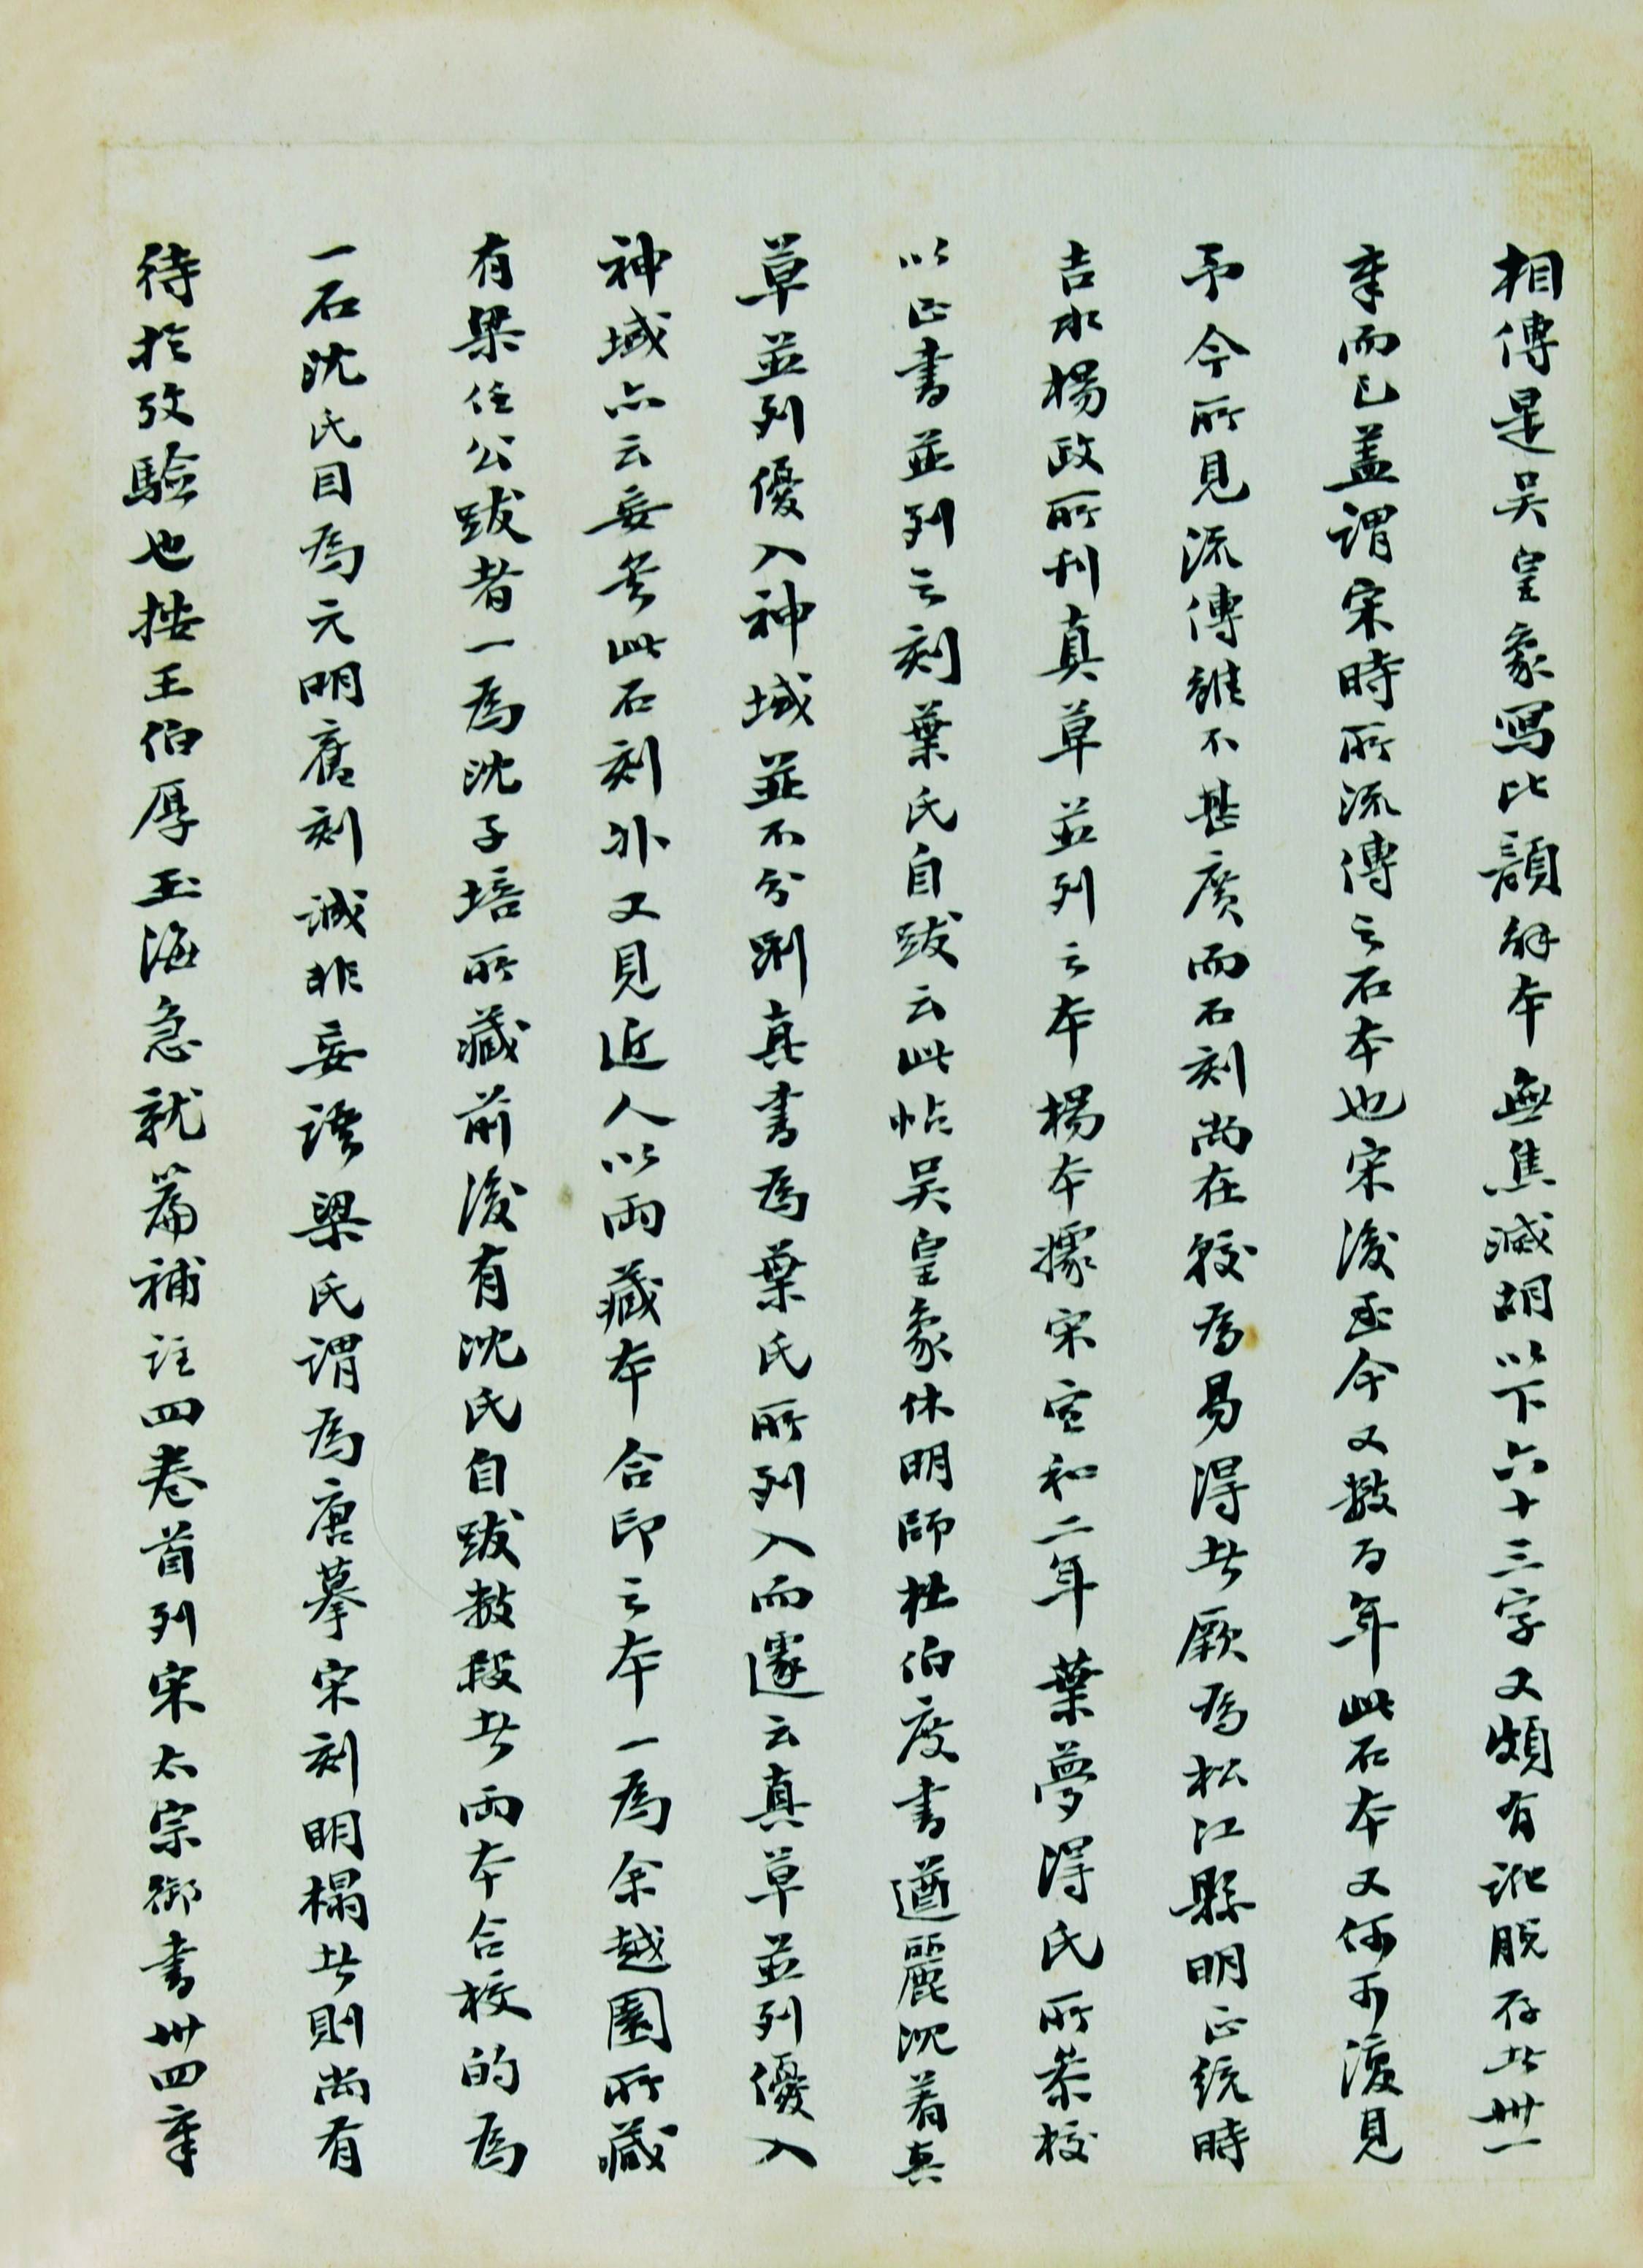 相傳是吳皇象寫比顏解本無焦滅胡以下六十三字又頗有訛脫存者卅一
章而已蓋謂宋時所流傳之石本也宋後至今又數百年此石本又何可復見
予今所見流傳雖不甚廣而石刻尚在較為易得者厥為松江縣明正統時
吉水楊政所刊真草並列之本楊本據宋宣和二年葉夢得氏所摹校
以正書並列之刻葉氏自跋云此帖吳皇象休明師杜伯度書遒麗沈着真
草並列優入神域並不分別真書為葉氏所列入而遂云真草並列優入
神域亦云妄矣此石刻外又見近人以兩藏本合印之本一為余越園所藏
有梁任公跋者一為沈子培所藏前後有沈氏自跋數段者兩本合校的為
一石沈氏目為元明舊刻誠非妄語梁氏謂為唐摹宋刻明榻者則尚有
待於攷驗也按王伯厚玉海急就篇補註四卷首列宋太宗御書卅四章